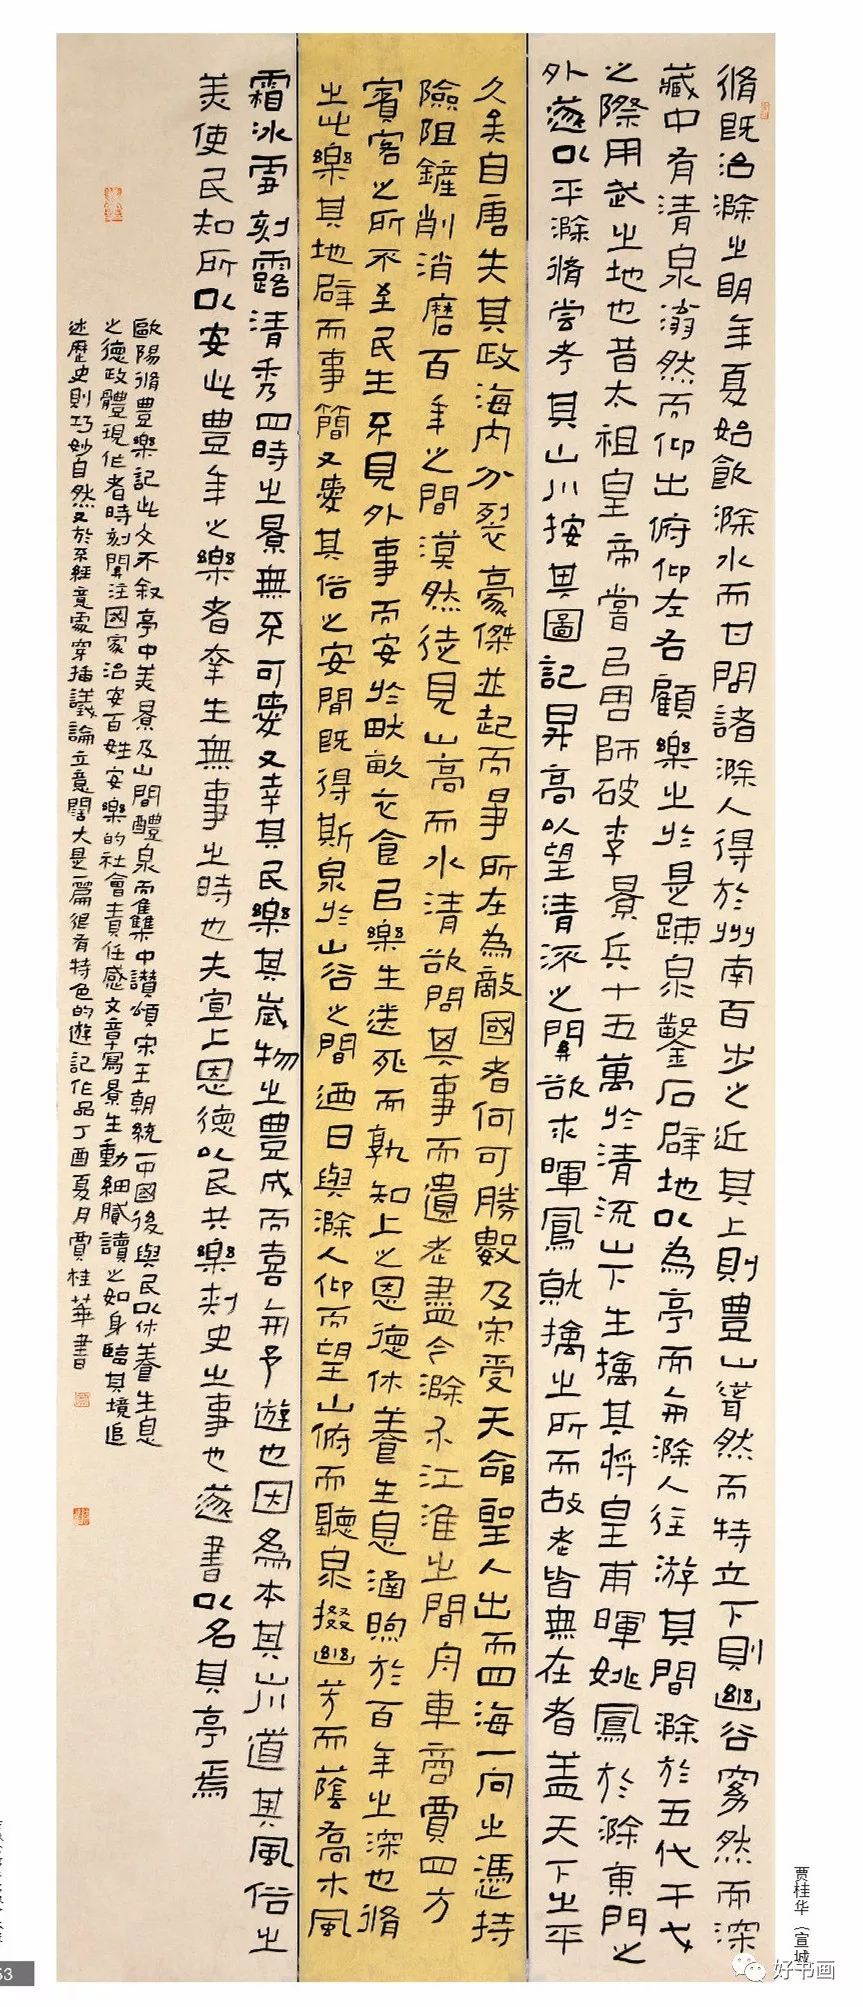 脩既治滁之明年夏始飲滁水而甘問諸滁人得於州南百步之近其上則豐山聳然而特立下則幽谷窈然而深
藏中有清泉滃然而仰出俯仰左右顧樂之於是疎泉鑿石辟地以為亭而與滁人往游其間滁於五代干戈
之際用武之地也昔太祖皇帝嘗以周師破李景兵十五萬於清流山下生擒其將皇甫暉姚鳳於滁東門之
外遂以平滁脩嘗考其山川按其圖記昇高以望清流之關欲求暉鳳就擒之所而故老皆無在者盖天下之平
久矣自唐失其政海内分裂豪傑並起而爭所在為敵國者何可勝數及宋受天命聖人出而四海一向之憑恃
險阻鏟削消磨百年之間漠然徒見山高而水清欲問其事而遺老盡今滁介江淮之間舟車商賈四方
賓客之所不至民生不見外事而安於畎畝衣食以樂生送死而孰知上之恩德休養生息涵煦於百年之深也脩
之此樂其地辟而事簡又愛其俗之安閒既得斯泉於山谷之間迺日與滁人仰而望山俯而聽泉掇幽芳而蔭喬木風
霜冰雪刻露清秀四時之景無不可愛又幸其民樂其歲物之豐成而喜與予遊也因為本其山川道其風俗之
美使民知所以安此豐年之樂者幸生無事之時也夫宣上恩德以民共樂刺史之事也遂書以名其亭焉
歐陽脩豐樂記此文不叙亭中美景及山間醴泉而集中讚頌宋王朝統一中國後與民以休養生息
之德政體現作者時刻關注國家治安百姓安樂的社會責任感文章寫景生動細膩讀之如身臨其境追
述歷史則巧妙自然又於不經意處穿插議論立意闊大是一篇很有特色的遊記作品丁酉夏月賈桂華書
贾桂华（宣城
好书画
53